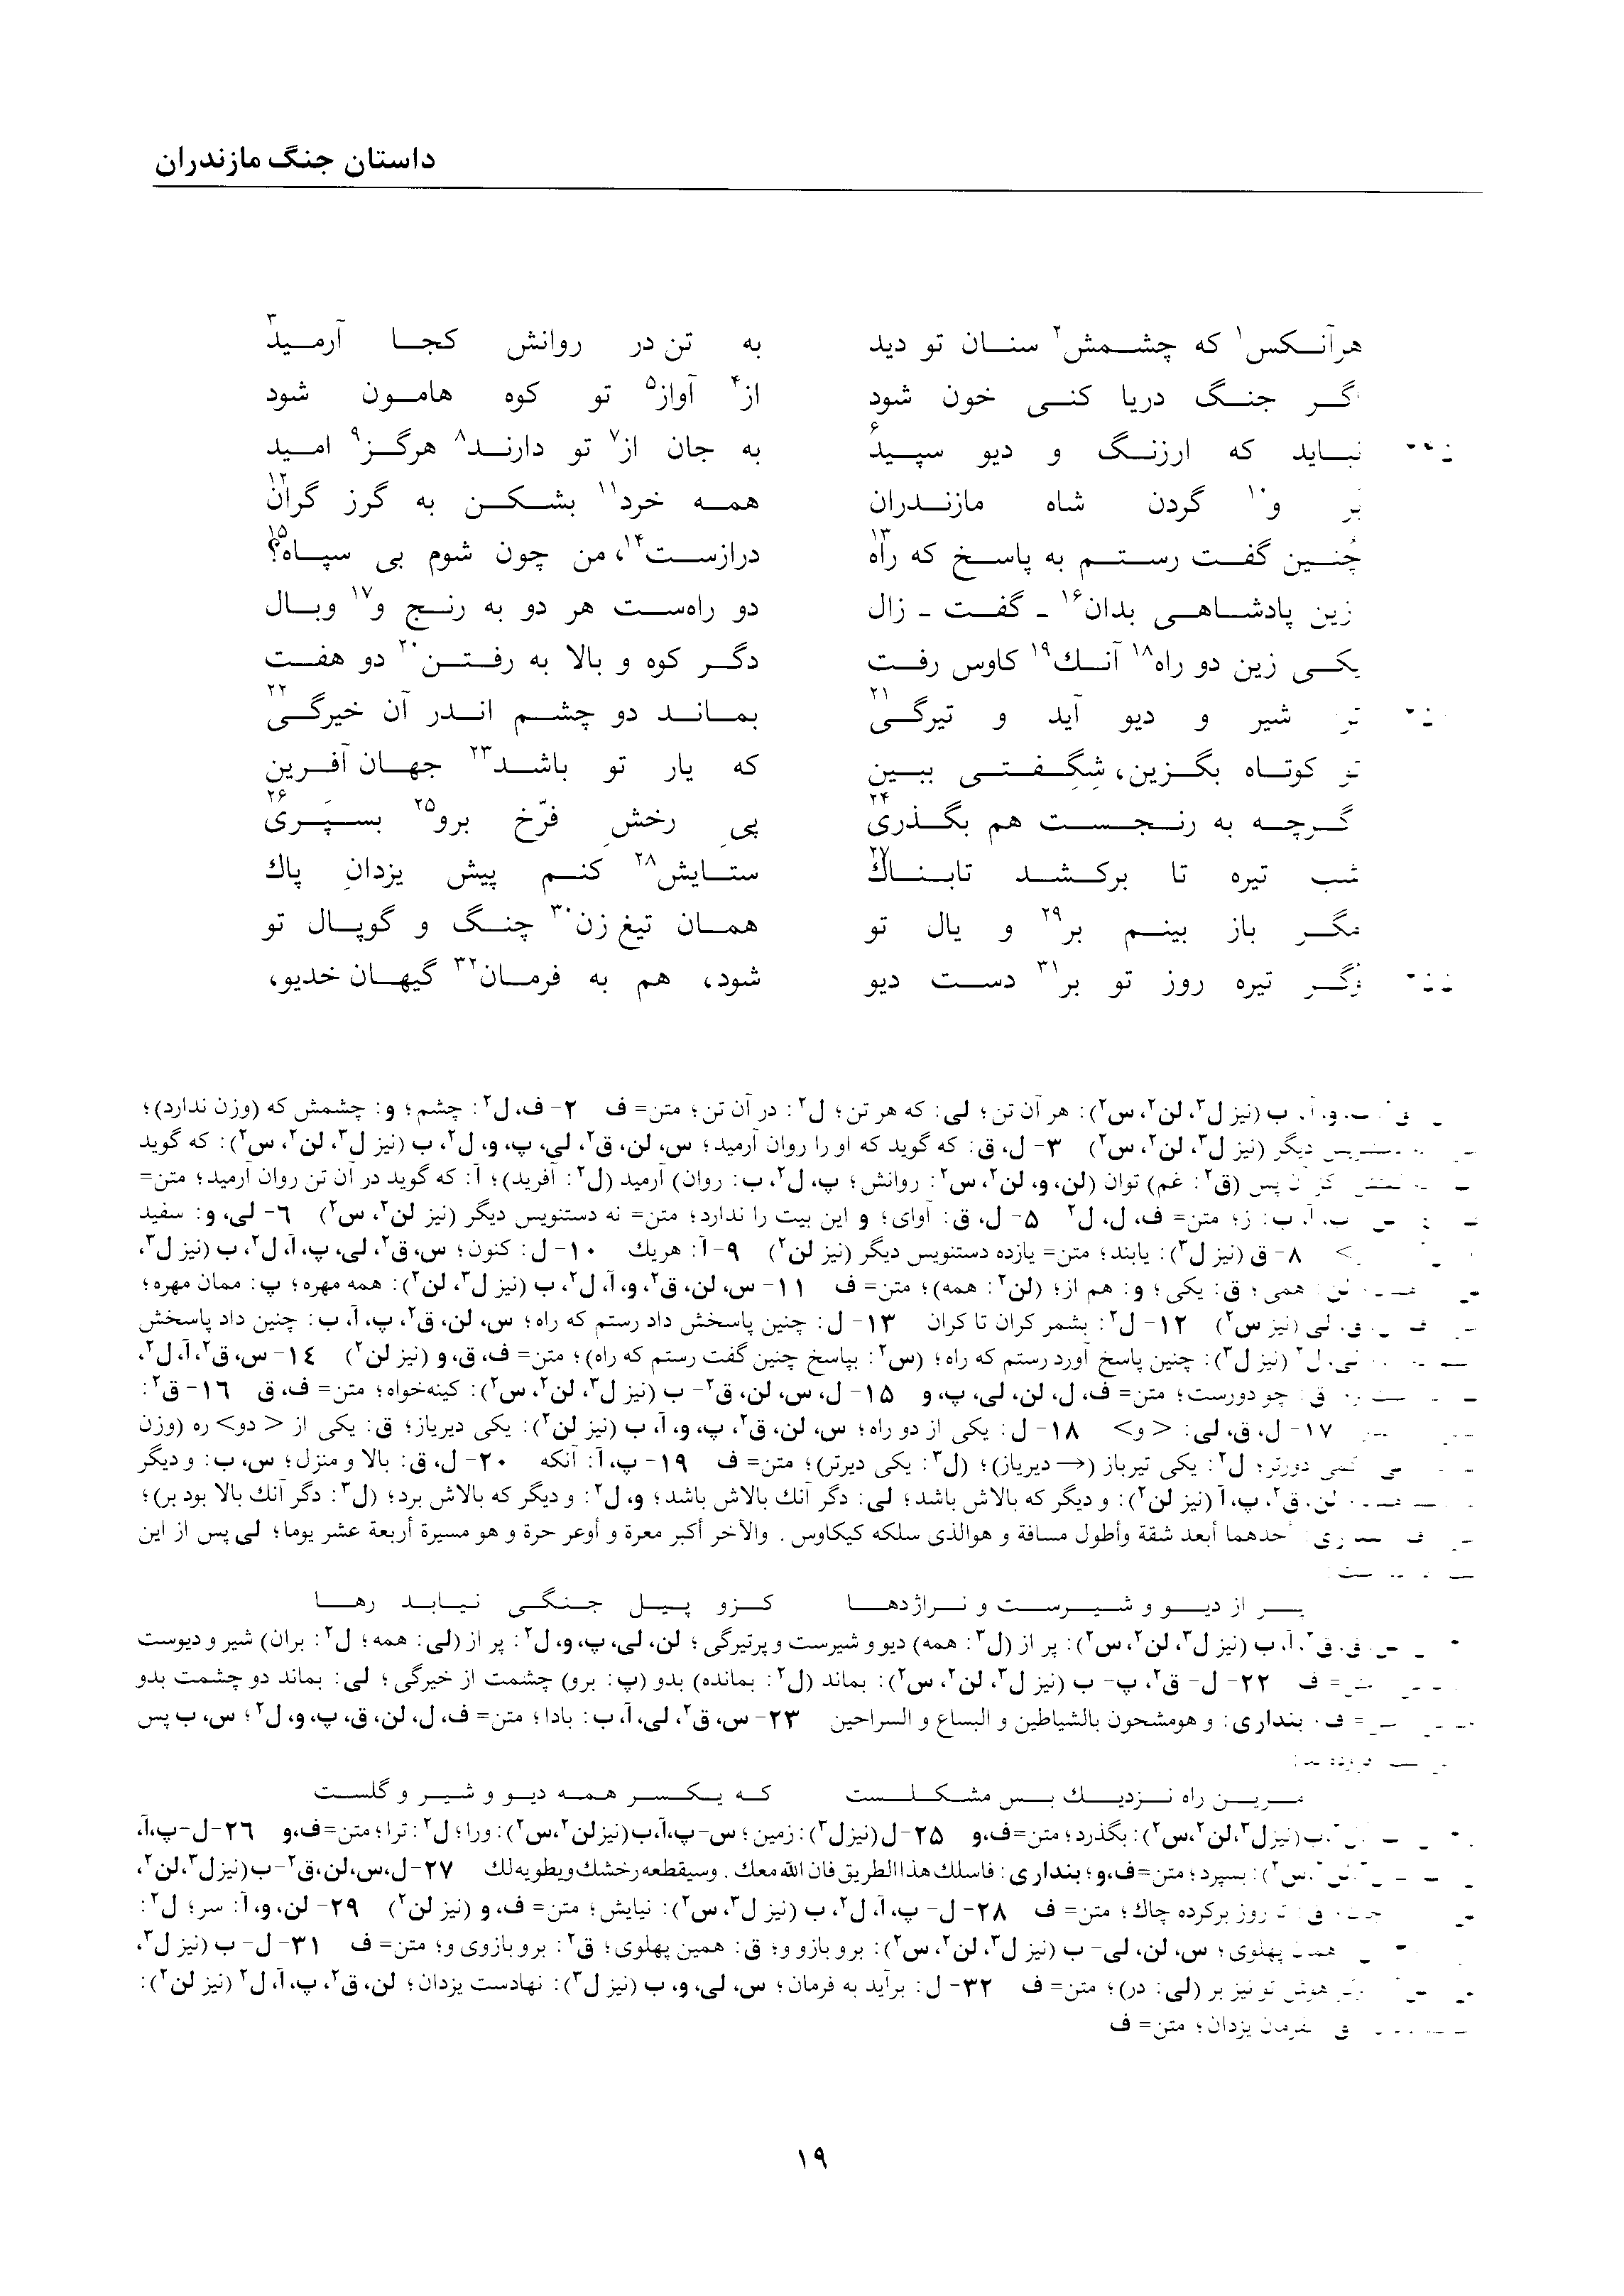 داستان جنگ مازندران
هرآنکس۱ که چشمش۲ سنان تو دید به تن در روانش کجا آرمید۳
گر جنگ دریا کنی خون شود از۴ آواز۵ تو کوه هامون شود
نباید که ارزنگ و دیو سپید۶ به جان از۷ تو دارند۸ هرگز۹ امید
بر و۱۰ گردن شاه مازندران همه خرد۱۱ بشکن به گرز گران۱۲
چنین گفت رستم به پاسخ که راه۱۳ درازست۱۴، من چون شوم بی سپاه؟۱۵
زین پادشاهی بدان۱۶ ـ گفت ـ زال دو راه‌ست هر دو به رنج و۱۷ وبال
یکی زین دو راه۱۸ آنك۱۹ کاوس رفت دگر کوه و بالا به رفتن۲۰ دو هفت
شیر و دیو آید و تیرگی۲۱ بماند دو چشم اندر آن خیرگی۲۲
تو کوتاه بگزین، شگفتی ببین که یار تو باشد۲۳ جهان آفرین
گرچه به رنجست هم بگذری۲۴ پیِ رخشِ فرّخ برو۲۵ بسپَری۲۶
شب تیره تا برکشد تابناك۲۷ ستایش۲۸ کنم پیش یزدانِ پاك
مگر باز بینم بر۲۹ و یال تو همان تیغ زن۳۰ چنگ و گوپال تو
وگر تیره روز تو بر۳۱ دست دیو شود، هم به فرمان۳۲ گیهان خدیو،
ب (نیز ل۳، لن۲، س۲): هر آن تن؛ لی: که هر تن؛ ل۲: در آن تن؛ متن= ف ۲- ف، ل۲: چشم؛ و: چشمش که (وزن ندارد)؛
دیگر (نیز ل۳، لن۲، س۲) ۳- ل، ق: که گوید که او را روان آرمید؛ س، لن، ق۲، لی، پ، و، ل۲، ب (نیز ل۳، لن۲، س۲): که گوید
پس (ق۲: غم) توان (لن، و، لن۲، س۲: روانش؛ پ، ل۲، ب: روان) آرمید (ل۲: آفرید)؛ آ: که گوید در آن تن روان آرمید؛ متن=
ب، آ، ب: ز؛ متن= ف، ل، ل۲ ۵- ل، ق: آوای؛ و این بیت را ندارد؛ متن= نه دستنویس دیگر (نیز لن۲، س۲) ۶- لی، و: سفید
۸- ق (نیز ل۳): یابند؛ متن= یازده دستنویس دیگر (نیز لن۲) ۹- آ: هریك ۱۰- ل: کنون؛ س، ق۲، لی، پ، آ، ل۲، ب (نیز ل۳،
همی؛ ق: یکی؛ و: هم از؛ (لن۲: همه)؛ متن= ف ۱۱- س، لن، ق۲، و، آ، ل۲، ب (نیز ل۳، لن۲): همه مهره؛ پ: ممان مهره؛
ق، لی (نیز س۲) ۱۲- ل۲: بشمر کران تا کران ۱۳- ل: چنین پاسخش داد رستم که راه؛ س، لن، ق۲، پ، آ، ب: چنین داد پاسخش
لی، ل۲ (نیز ل۳): چنین پاسخ آورد رستم که راه؛ (س۲: بپاسخ چنین گفت رستم که راه)؛ متن= ف، ق، و (نیز لن۲) ۱۴- س، ق۲، آ، ل۲،
ق: چو دورست؛ متن= ف، ل، لن، لی، پ، و ۱۵- ل، س، لن، ق۲- ب (نیز ل۳، لن۲، س۲): کینه‌خواه؛ متن= ف، ق ۱۶- ق۲:
۱۷- ل، ق، لی: <و> ۱۸- ل: یکی از دو راه؛ س، لن، ق۲، پ، و، آ، ب (نیز لن۲): یکی دیریاز؛ ق: یکی از <دو> ره (وزن
دورتر؛ ل۲: یکی تیرباز (→ دیریاز)؛ (ل۳: یکی دیرتر)؛ متن= ف ۱۹- پ، آ: آنکه ۲۰- ل، ق: بالا و منزل؛ س، ب: و دیگر
لن، ق۲، پ، آ (نیز لن۲): و دیگر که بالاش باشد؛ لی: دگر آنك بالاش باشد؛ و، ل۲: و دیگر که بالاش برد؛ (ل۳: دگر آنك بالا بود بر)؛
حدهما أبعد شقة وأطول مسافة و هوالذی سلکه کیکاوس. والآخر أکبر معرة و أوعر حرة و هو مسیرة أربعة عشر یوما؛ لی پس از این
پر از دیو و شیرست و نراژدها کزو پیل جنگی نیابد رها
ق، ق۲، آ، ب (نیز ل۳، لن۲، س۲): پر از (ل۳: همه) دیو و شیرست و پرتیرگی؛ لن، لی، پ، و، ل۲: پر از (لی: همه؛ ل۲: بران) شیر و دیوست
= ف ۲۲- ل- ق۲، پ- ب (نیز ل۳، لن۲، س۲): بماند (ل۲: بمانده) بدو (پ: برو) چشمت از خیرگی؛ لی: بماند دو چشمت بدو
= ف، بنداری: و هومشحون بالشیاطین و البساع و السراحین ۲۳- س، ق۲، لی، آ، ب: بادا؛ متن= ف، ل، لن، ق، پ، و، ل۲؛ س، ب پس
مرین راه نزدیك بس مشکلست که یکسر همه دیو و شیر و گلست
ب (نیز ل۳، لن۲، س۲): بگذرد؛ متن= ف، و ۲۵- ل (نیز ل۳): زمین؛ س- پ، آ، ب (نیز لن۲، س۲): ورا؛ ل۲: ترا؛ متن= ف، و ۲۶- ل- پ، آ،
س۲): بسپرد؛ متن= ف، و؛ بنداری: فاسلك هذا الطریق فان الله معك. وسیقطعه رخشك ویطویه لك ۲۷- ل، س، لن، ق۲- ب (نیز ل۳، لن۲،
روز برکرده چاك؛ متن= ف ۲۸- ل- پ، آ، ل۲، ب (نیز ل۳، س۲): نیایش؛ متن= ف، و (نیز لن۲) ۲۹- لن، و، آ: سر؛ ل۲:
پهلوی؛ س، لن، لی- ب (نیز ل۳، لن۲، س۲): برو بازو و؛ ق: همین پهلوی؛ ق۲: برو بازوی و؛ متن= ف ۳۱- ل- ب (نیز ل۳،
هوش تو نیز بر (لی: در)؛ متن= ف ۳۲- ل: برآید به فرمان؛ س، لی، و، ب (نیز ل۳): نهادست یزدان؛ لن، ق۲، پ، آ، ل۲ (نیز لن۲):
یزدان؛ متن= ف
۱۹